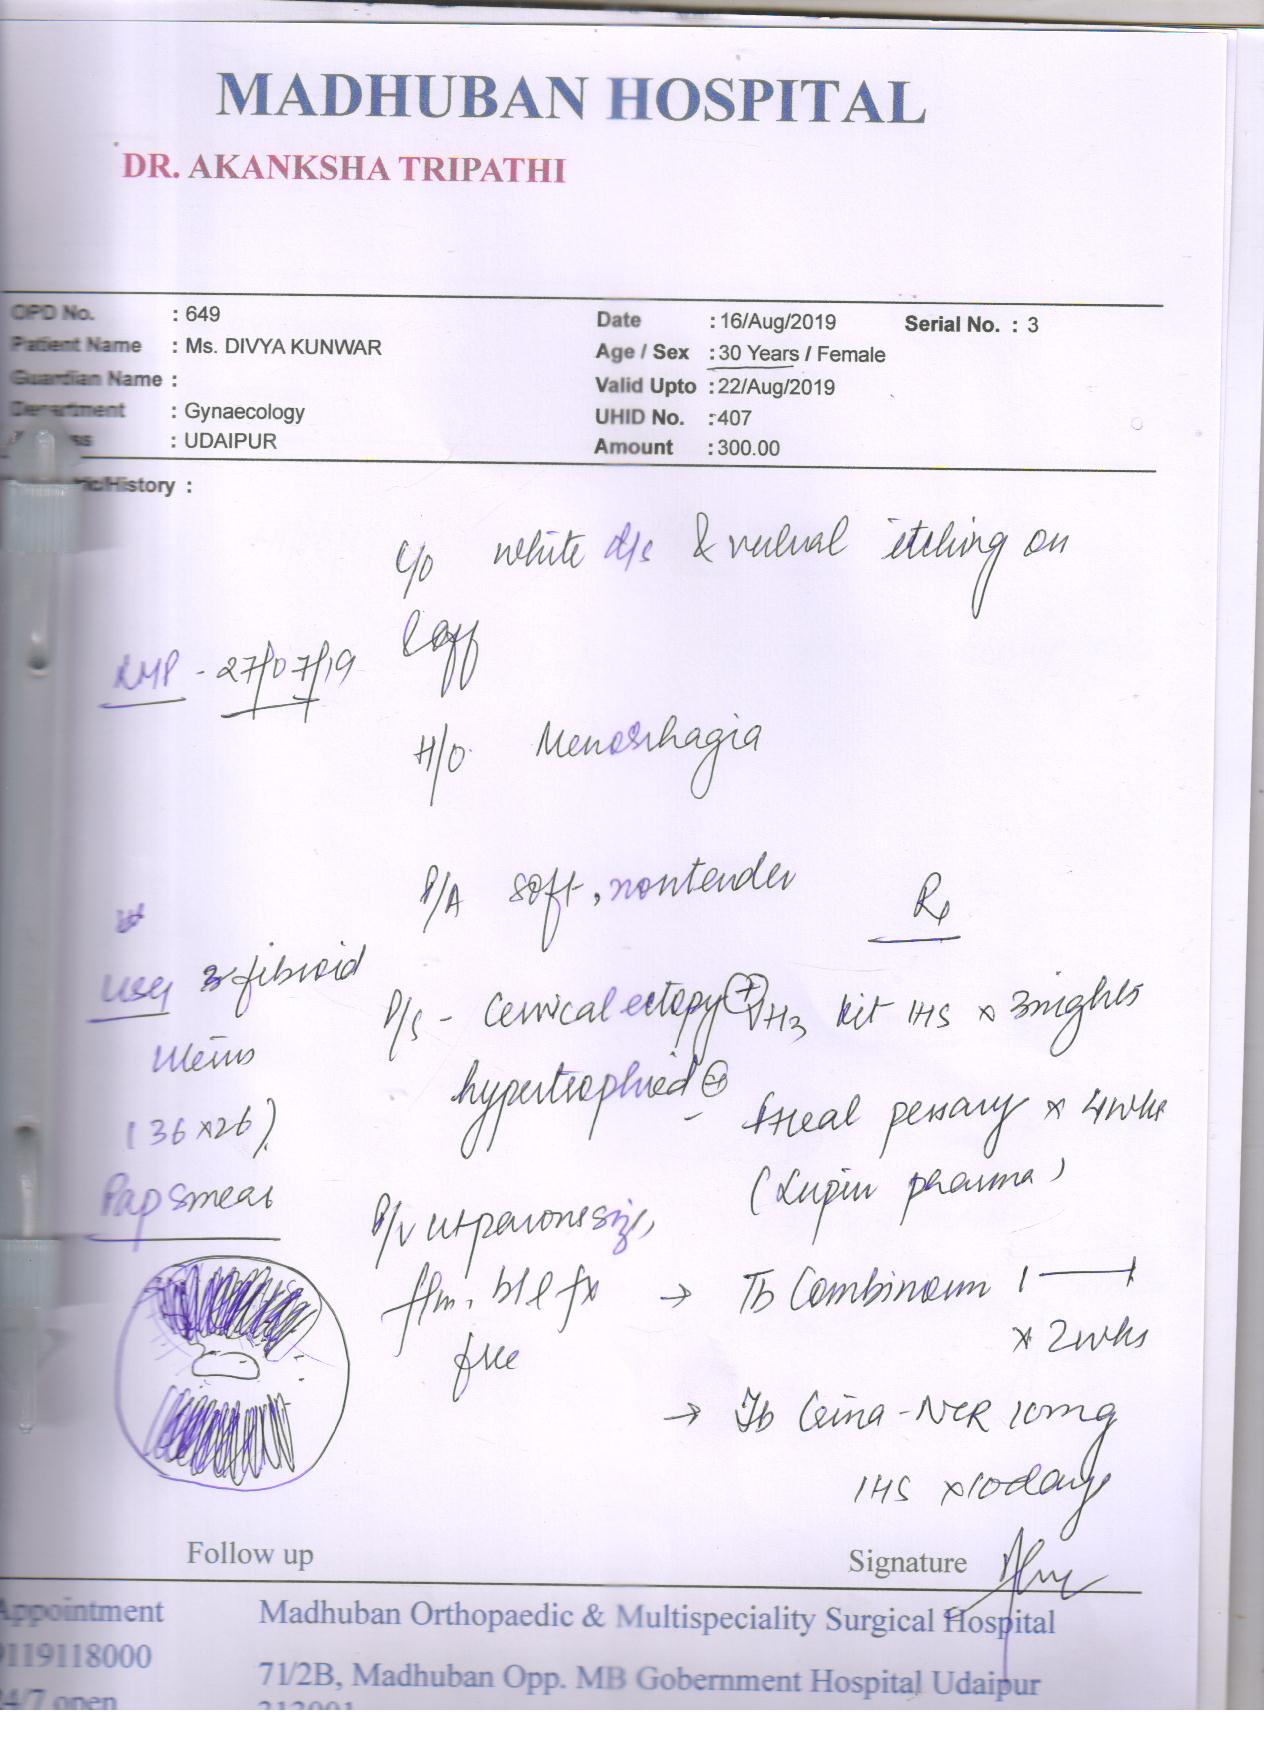 MADHUBAN HOSPITAL
DR. AKANKSHA TRIPATHI
OPD No. : 649
Patient Name : Ms. DIVYA KUNWAR
Guardian Name :
Department : Gynaecology
: UDAIPUR
Date : 16/Aug/2019 Serial No. : 3
Age / Sex : 30 Years / Female
Valid Upto : 22/Aug/2019
UHID No. : 407
Amount : 300.00
History :
C/O white d/s & vulval itching on
& off
LMP - 27/07/19
H/O Menorrhagia
P/A soft, nontender
Rx
USG fibroid
uterus
(36 x 26)
Pap smear
P/S - Cervical ectopy +
hypertrophied
P/V ut parous size,
f/m, b/l fx
free
kit 1HS x 3 nights
pessary x 4 wks
(Lupin pharma)
→ Tb 1
x 2 wks
→ Tb - NCR 10mg
1HS x 10 days
Follow up
Signature
Appointment
9119118000
24/7 open
Madhuban Orthopaedic & Multispeciality Surgical Hospital
71/2B, Madhuban Opp. MB Gobernment Hospital Udaipur
313001